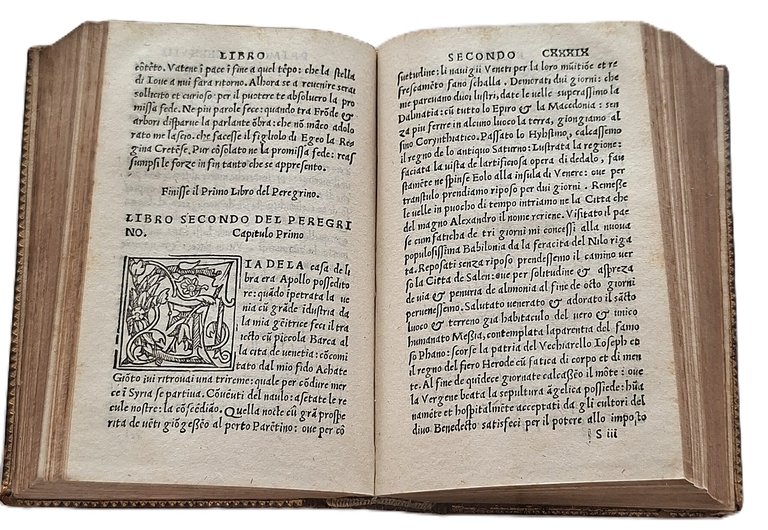 LIBRO
cõtẽto. Vatene ĩ pace ĩ fine a quel tẽpo: che la stella
di Ioue a nui fara ritorno. Alhora se a reuenire serai
sollicito et curioso per il puotere te absoluero la pro
missa fede. Ne piu parole fece: quando tra Frõde &
arbori disparue la parlante õbra: che nõ mãco adolo
rato me lascio. che facesse il figliolo di Egeo la Re
gina Cretẽse. Pur cõsolato ne la promissa fede: reas
sumpsi le forze in fin tanto che se appresento.
Finisse il Primo Libro del Peregrino.
LIBRO SECONDO DEL PEREGRI
NO. Capitulo Primo
GIA DE LA casa de li
bra era Apollo possedito
re: quãdo ĩpetrata la ue
nia cũ grãde ĩdustria da
la mia gẽitrice feci il tra
iecto cũ piccola Barca al
la cita de uenetia: cõcomi
tato dal mio fido Achate
Giõto iui ritrouai una trireme: quale per cõdure merce
ce ĩ Syria se partiua. Cõuẽuti del naulo: asetate le re
cule nostre: la cõscẽdião. Quella nocte cũ grã prospe
rita de uẽti giõgessẽo al porto Parẽtino: oue per cõ
SECONDO CXXXIX
suetudine: li nauigii Veneti per la loro muitiõe et re
frescamẽto fano schalla. Demorati dui giorni: che
me pareuano duoi lustri, date le uelle superassimo la
Dalmatia: cũ tutto lo Epiro & la Macedonia: sen
za piu ferire in alcuno luoco la terra, giongiamo al
sino Corynthiatico. Passato lo Hybstmo, calcassemo
il regno de lo antiquo Saturno: Lustrata la regione:
saciata la uista de lartificiosa opera di dedalo, fau
stamẽte ne spinse Eolo alla insula di Venere: oue per
transtulo prendiamo riposo per dui giorni. Remesse
le uelle in puocho di tempo intriamo ne la Citta che
del magno Alexandro il nome retiene. Visitato il pae
se cum faticha de tri giorni mi concessi alla nuoua
populosissima Babilonia da la feracita del Nilo riga
ta. Reposati senza riposo prendessemo il camino uer
so la Citta de Salen: oue per solitudine & aspreza
de uia & penuria de almonia al fine de octo giorni
peruenessemo. Salutato uenerato & adorato il sãcto
luoco & terreno gia habitaculo del uero & unico
humanato Messia, contemplata laparentia del famo
so Phano: scorse la patria del Vechiarello Ioseph et
il regno del fiero Herode cũ fatica di corpo et di men
te. Al fine de quidece giornate calcassẽo il mõte: oue
la Vergene beata la sepultura ãgelica possiede: hũa
namẽte et hospitalmẽte acceptati da gli cultori del
diuo Benedecto satisfeci per il potere allo imposto
S iii